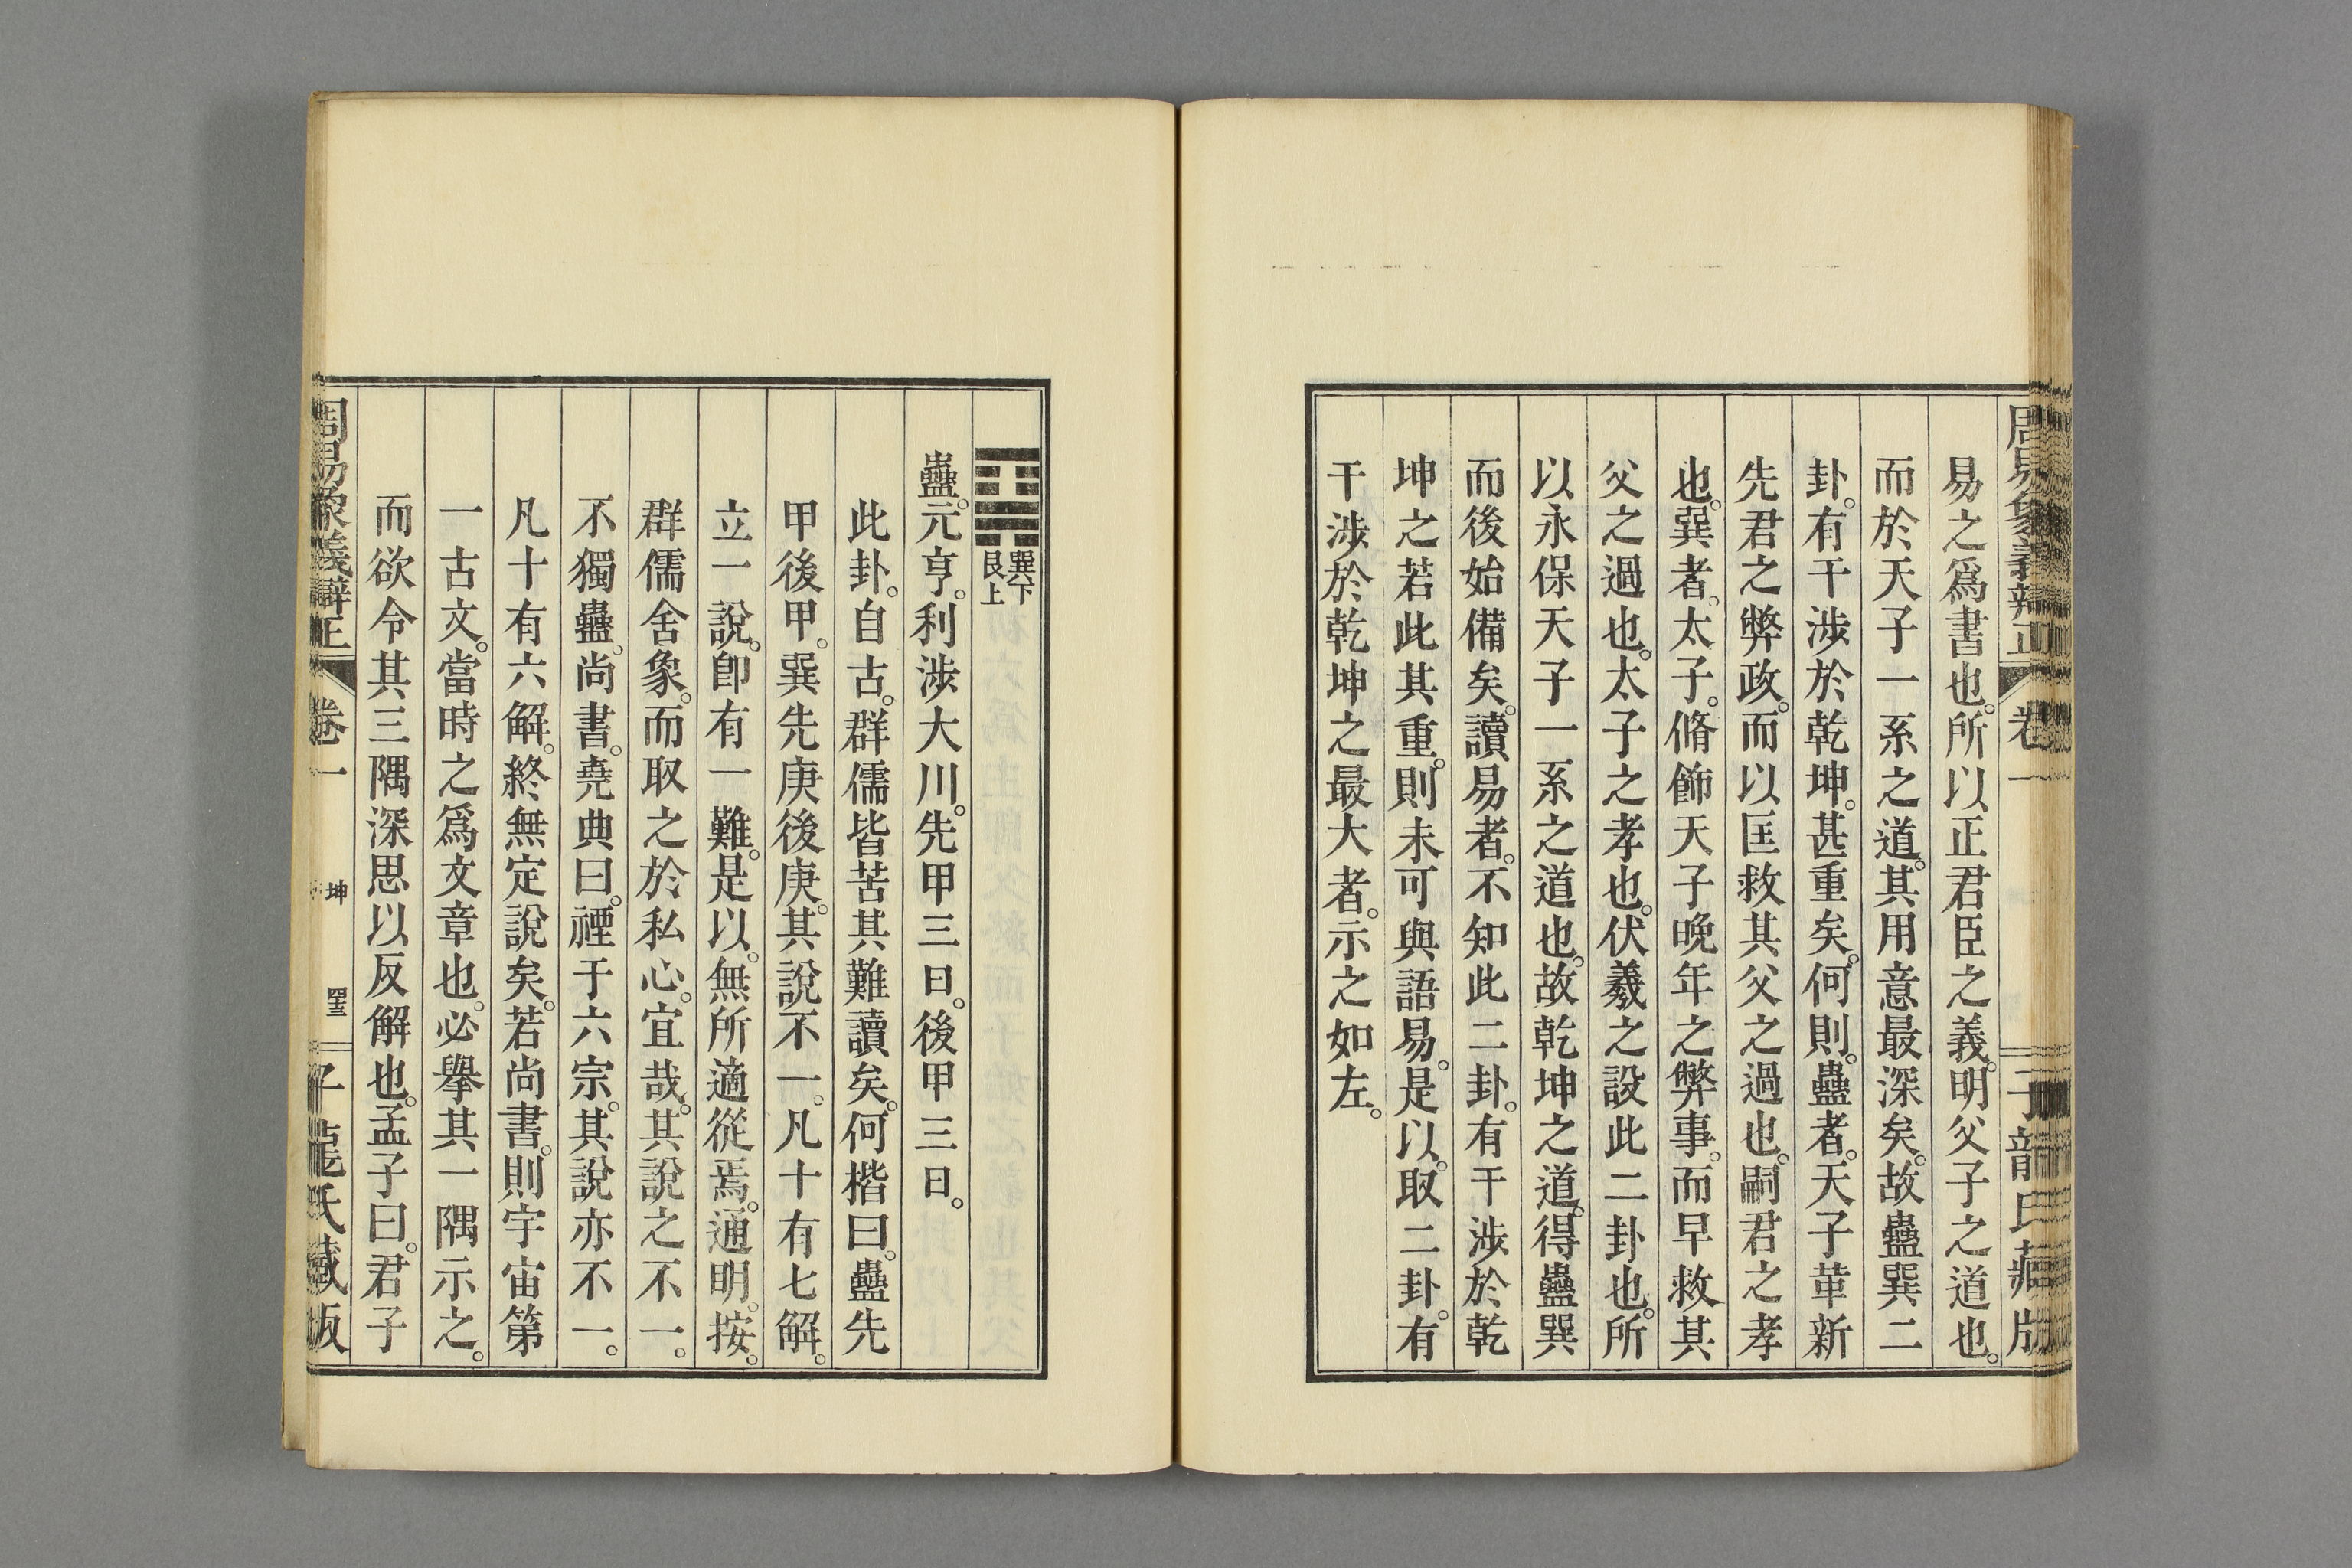 周易象義辯正 卷一 子龍氏藏版
易之爲書也。所以正君臣之義。明父子之道也。
而於天子一系之道。其用意最深矣。故蠱巽二
卦。有干涉於乾坤。甚重矣。何則。蠱者。天子革新
先君之弊政。而以匡救其父之過也。嗣君之孝
也。巽者。太子。脩飾天子晚年之弊事。而早救其
父之過也。太子之孝也。伏羲之設此二卦也。所
以永保天子一系之道也。故乾坤之道。得蠱巽
而後始備矣。讀易者。不知此二卦。有干涉於乾
坤之若此其重。則未可與語易。是以。取二卦。有
干涉於乾坤之最大者。示之如左。
巽下
艮上
蠱。元亨。利涉大川。先甲三日。後甲三日。
此卦。自古。群儒皆苦其難讀矣。何楷曰。蠱先
甲後甲。巽先庚後庚。其說不一。凡十有七解。
立一說。卽有一難。是以。無所適從焉。通明。按。
群儒舍象。而取之於私心。宜哉。其說之不一。
不獨蠱。尚書。堯典曰。禋于六宗。其說亦不一。
凡十有六解。終無定說矣。若尚書。則宇宙第
一古文。當時之爲文章也。必擧其一隅示之。
而欲令其三隅深思以反解也。孟子曰。君子
周易象義辯正 卷一 坤 子龍氏藏版